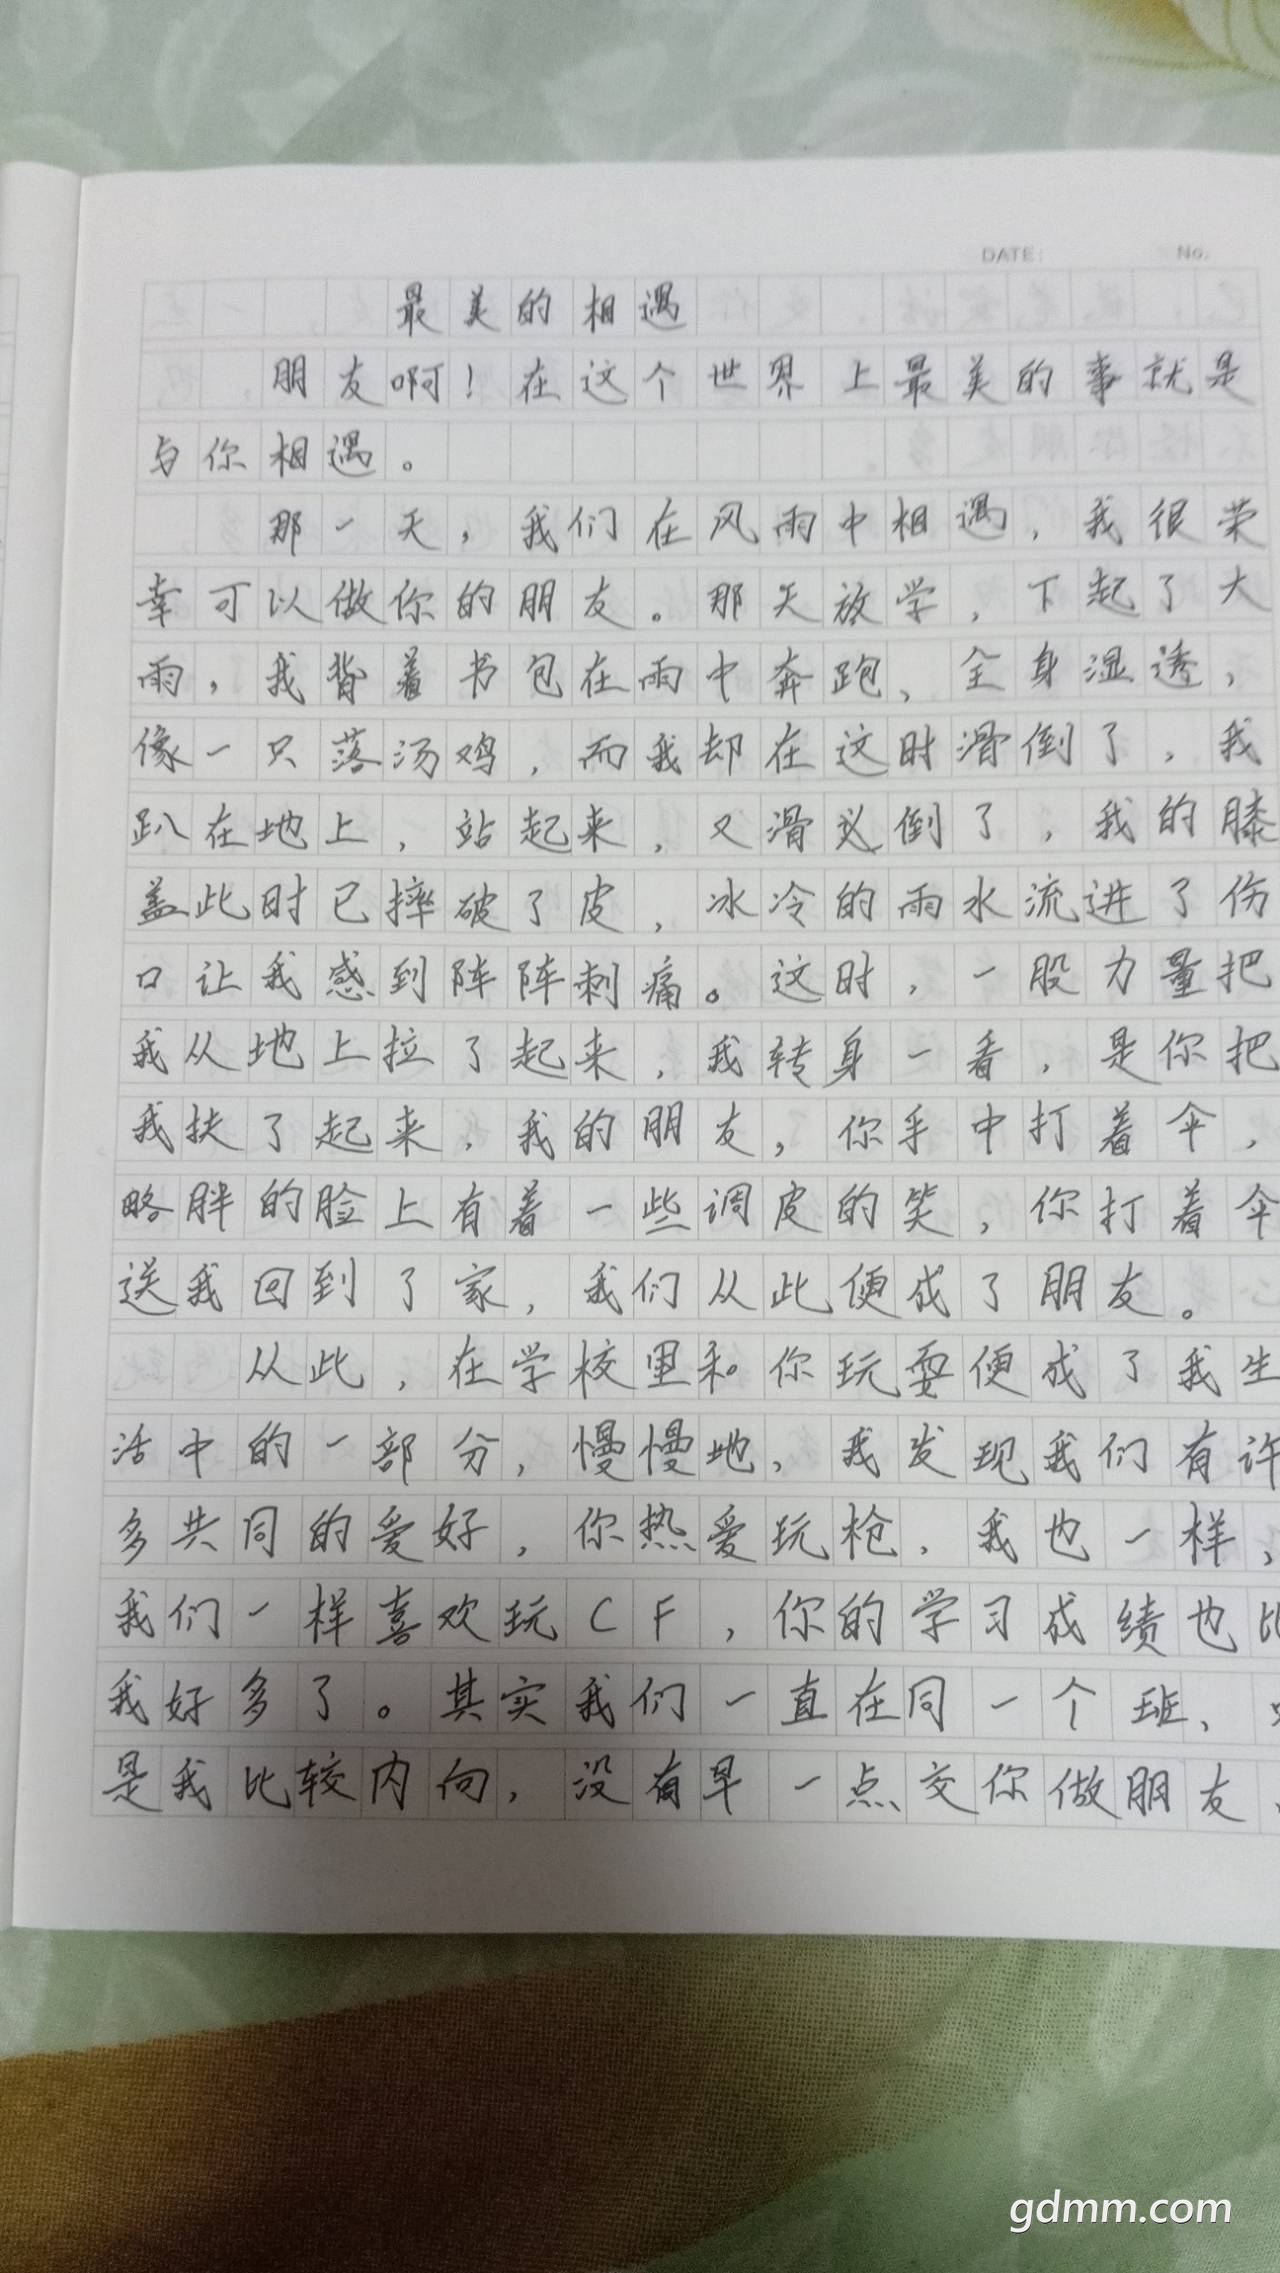 DATE: No.
最美的相遇
朋友啊！在这个世界上最美的事就是
与你相遇。
那一天，我们在风雨中相遇，我很荣
幸可以做你的朋友。那天放学，下起了大
雨，我背着书包在雨中奔跑，全身湿透，
像一只落汤鸡，而我却在这时滑倒了，我
趴在地上，站起来，又滑倒了，我的膝
盖此时已摔破了皮，冰冷的雨水流进了伤
口让我感到阵阵刺痛。这时，一股力量把
我从地上拉了起来，我转身一看，是你把
我扶了起来，我的朋友，你手中打着伞，
略胖的脸上有着一些调皮的笑，你打着伞
送我回到了家，我们从此便成了朋友。
从此，在学校里和你玩耍便成了我生
活中的一部分，慢慢地，我发现我们有许
多共同的爱好，你热爱玩枪，我也一样，
我们一样喜欢玩CF，你的学习成绩也比
我好多了。其实我们一直在同一个班，
是我比较内向，没有早一点交你做朋友，
gdmm.com